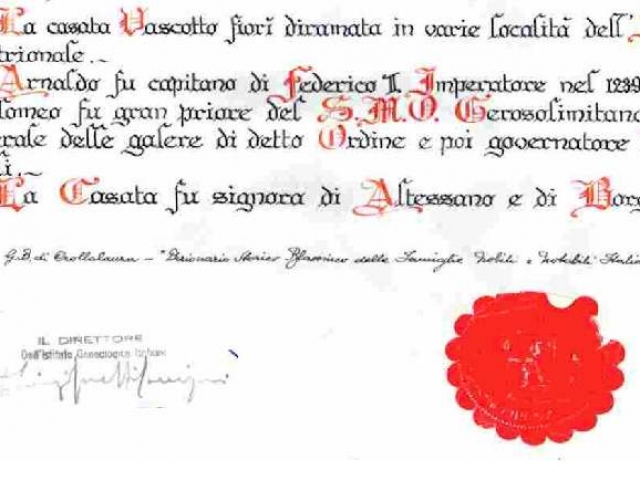 La casata Vascotto fiorì diramata in varie località dell'
trionale.-
Arnaldo fu capitano di Federico II Imperatore nel 1239
lomeo fu gran priore del S.M.O. Gerosolimitano
rale delle galere di detto Ordine e poi governatore
li.-
La Casata fu signora di Altessano e di Bor
G.B. di Crollalanza - "Dizionario Storico Blasonico delle Famiglie Nobili e Notabili Italia
IL DIRETTORE
Dell'Istituto Genealogico Italiano